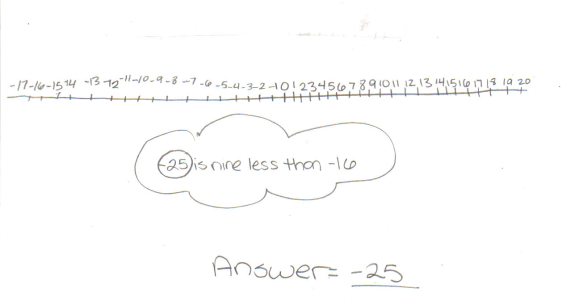 -17-16-15 14 -13 -12 -11-10-9-8 -7 -6 -5-4-3-2-1 0 1 2 3 4 5 6 7 8 9 10 11 12 13 14 15 16 17 18 19 20
-25 is nine less than -16
Answer= -25